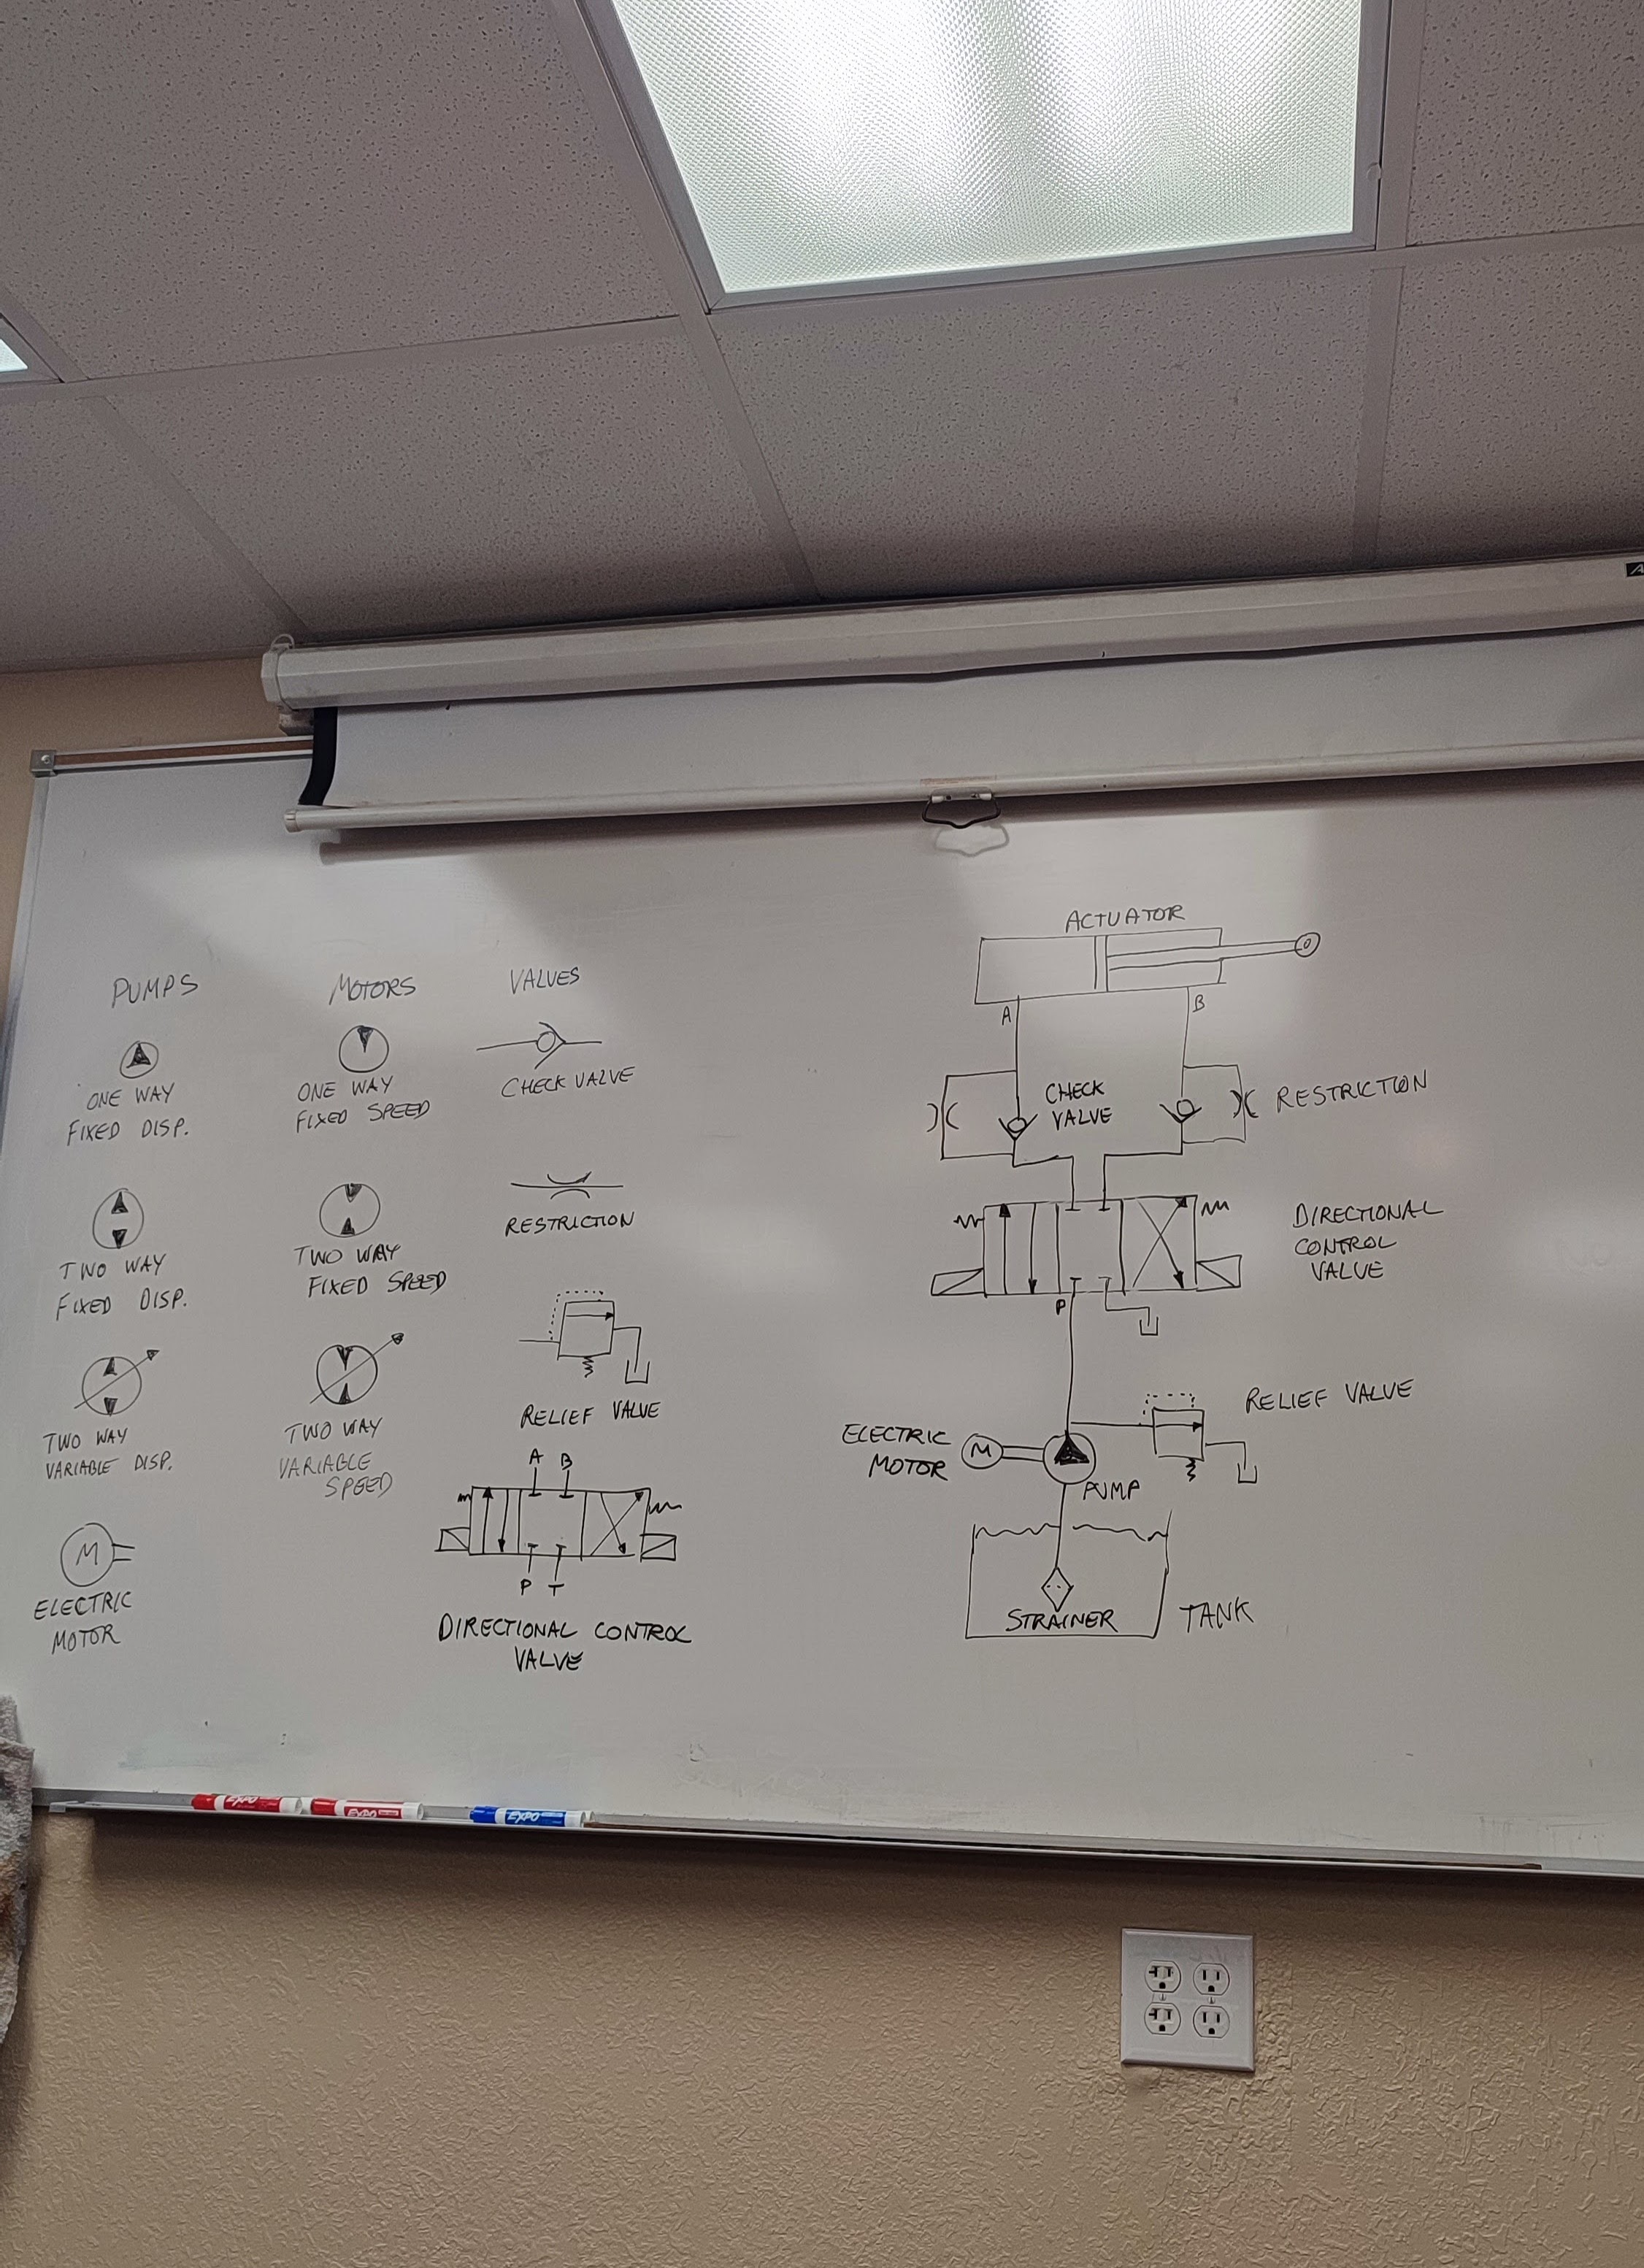 PUMPS
ONE WAY
FIXED DISP.
TWO WAY
FIXED DISP.
TWO WAY
VARIABLE DISP.
M
ELECTRIC
MOTOR
MOTORS
ONE WAY
FIXED SPEED
TWO WAY
FIXED SPEED
TWO WAY
VARIABLE
SPEED
VALVES
CHECK VALVE
RESTRICTION
RELIEF VALVE
A B
P T
DIRECTIONAL CONTROL
VALVE
ACTUATOR
A B
CHECK
VALVE
RESTRICTION
DIRECTIONAL
CONTROL
VALVE
P
RELIEF VALVE
ELECTRIC
MOTOR
M
PUMP
STRAINER
TANK
EXPO
EXPO
EXPO